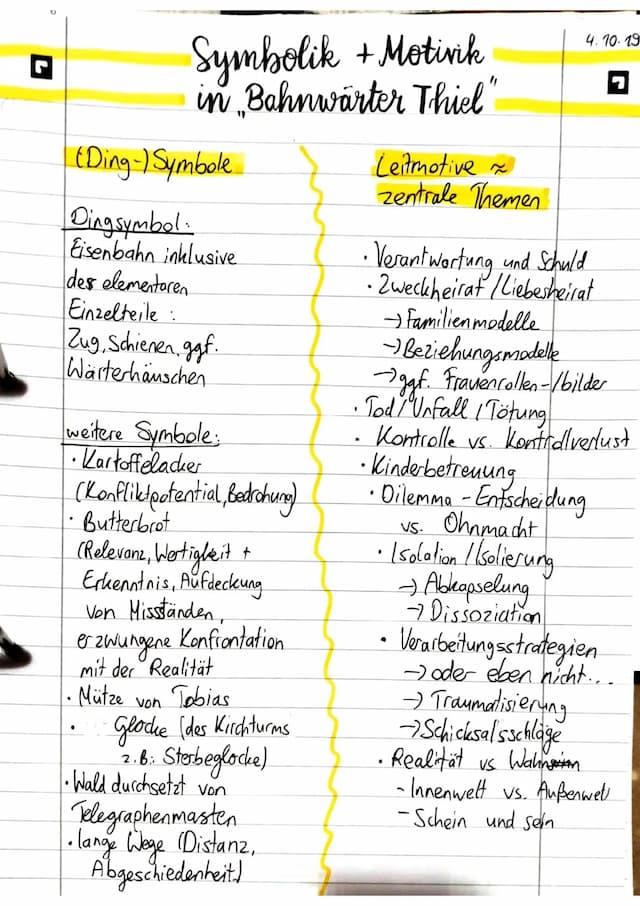 4.10.19
Symbolik + Motivik
in „Bahnwärter Thiel"
(Ding-) Symbole
Dingsymbol:
Eisenbahn inklusive
der elementaren
Einzelteile :
Zug, Schienen, ggf.
Wärterhäuschen
weitere Symbole:
· Kartoffelacker
(Konfliktpotential, Bedrohung)
· Butterbrot
(Relevanz, Wertigkeit +
Erkenntnis, Aufdeckung
von Misständen,
erzwungene Konfrontation
mit der Realität
· Mütze von Tobias
· Glocke (des Kirchturms
z.B.: Sterbeglocke)
· Wald durchsetzt von
Telegraphenmasten
· lange Wege (Distanz,
Abgeschiedenheit)
Leitmotive ≈
zentrale Themen
· Verantwortung und Schuld
· Zweckheirat / Liebesheirat
→ Familienmodelle
→ Beziehungsmodelle
→ ggf. Frauenrollen-/bilder
· Tod / Unfall / Tötung
· Kontrolle vs. Kontrollverlust
· Kinderbetreuung
· Dilemma - Entscheidung
vs. Ohnmacht
· Isolation / Isolierung
→ Abkapselung
→ Dissoziation
· Verarbeitungsstrategien
→ oder eben nicht...
→ Traumatisierung
→ Schicksalsschläge
· Realität vs Wahn
- Innenwelt vs. Außenwelt
- Schein und sein